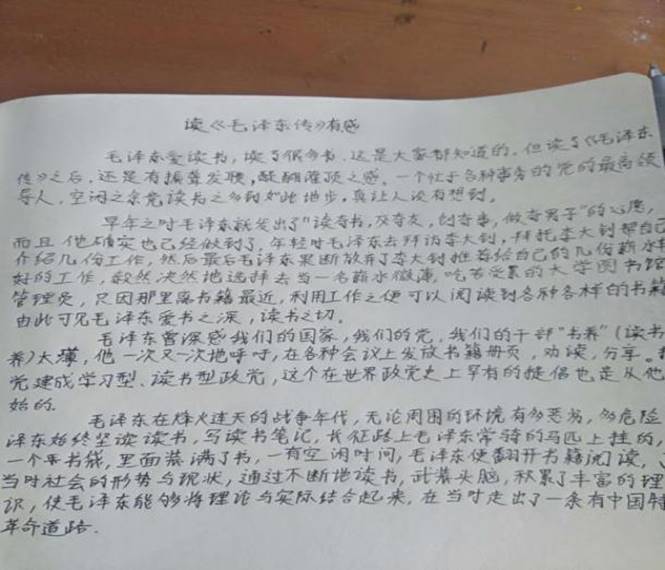 读《毛泽东传》有感
毛泽东爱读书，读了很多书，这是大家都知道的，但读了《毛泽东
传》之后，还是有振聋发聩，醍醐灌顶之感。一个忙于各种事务的党的最高领
导人，空闲之余竟读书之多到如此地步，真让人没有想到。
早年之时毛泽东就发出了"读奇书，交奇友，创奇事，做奇男子"的心愿，
而且他确实也已经做到了，年轻时毛泽东去拜访李大钊，拜托李大钊帮自己
介绍几份工作，然后最后毛泽东果断放弃了李大钊推荐给自己的几份薪水
好的工作，毅然决然地选择去当一名薪水微薄，吃苦受累的大学图书馆
管理员，只因那里离书籍最近，利用工作之便可以阅读到各种各样的书籍
由此可见毛泽东爱书之深，读书之切。
毛泽东曾深感我们的国家，我们的党，我们的干部"书养"（读书
养）太薄，他一次又一次地呼吁，在各种会议上发放书籍册页，劝读，分享。
党建成学习型、读书型政党，这个在世界政党史上罕有的提倡也是从他
始的．
毛泽东在烽火连天的战争年代，无论周围的环境有多恶劣，多危险
泽东始终坚读读书，写读书笔记，长征路上毛泽东常骑的马匹上挂的，
一个书袋，里面装满了书，一有空闲时间，毛泽东便翻开书籍阅读，
当时社会的形势与现状，通过不断地读书，武装头脑，积累了丰富的理
识，使毛泽东能够将理论与实际结合起来，在当时走出了一条有中国特
革命道路．